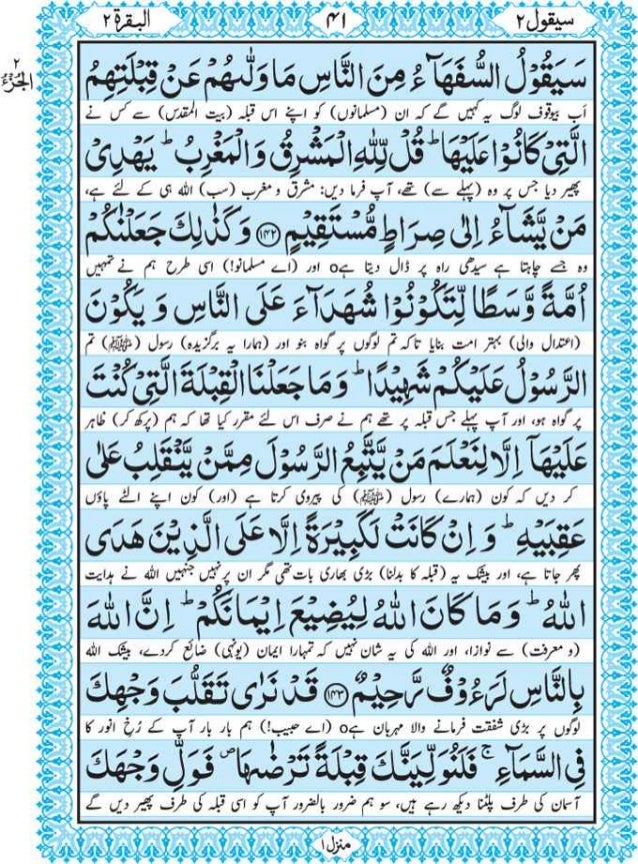 سیقول ۲ ۴۱ البقرة ۲
الجزء ۲
سَيَقُوْلُ السُّفَهَآءُ مِنَ النَّاسِ مَا وَلّٰىهُمْ عَنْ قِبْلَتِهِمُ
اَب بیوقوف لوگ یہ کہیں گے کہ ان (مسلمانوں) کو اپنے اس قبلہ (بیت المقدس) سے کس نے
الَّتِيْ كَانُوْا عَلَيْهَا ؕ قُلْ لِّلّٰهِ الْمَشْرِقُ وَالْمَغْرِبُ ؕ يَهْدِيْ
پھیر دیا جس پر وہ (پہلے سے) تھے، آپ فرما دیں: مشرق و مغرب (سب) اللہ ہی کے لئے ہے،
مَنْ يَّشَآءُ اِلٰى صِرَاطٍ مُّسْتَقِيْمٍ ﴿۱۴۲﴾ وَكَذٰلِكَ جَعَلْنٰكُمْ
وہ جسے چاہتا ہے سیدھی راہ پر ڈال دیتا ہےo اور (اے مسلمانو!) اسی طرح ہم نے تمہیں
اُمَّةً وَّسَطًا لِّتَكُوْنُوْا شُهَدَآءَ عَلَى النَّاسِ وَ يَكُوْنَ
(اعتدال والی) بہتر امت بنایا تاکہ تم لوگوں پر گواہ بنو اور (ہمارا یہ برگزیدہ) رسول (ﷺ) تم
الرَّسُوْلُ عَلَيْكُمْ شَهِيْدًا ؕ وَمَا جَعَلْنَا الْقِبْلَةَ الَّتِيْ كُنْتَ
پر گواہ ہو، اور آپ پہلے جس قبلہ پر تھے ہم نے صرف اس لئے مقرر کیا تھا کہ ہم (پرکھ کر) ظاہر
عَلَيْهَاۤ اِلَّا لِنَعْلَمَ مَنْ يَّتَّبِعُ الرَّسُوْلَ مِمَّنْ يَّنْقَلِبُ عَلٰى
کر دیں کہ کون (ہمارے) رسول (ﷺ) کی پیروی کرتا ہے (اور) کون اپنے الٹے پاؤں
عَقِبَيْهِ ؕ وَ اِنْ كَانَتْ لَكَبِيْرَةً اِلَّا عَلَى الَّذِيْنَ هَدَى
پھر جاتا ہے، اور بیشک یہ (قبلہ کا بدلنا) بڑی بھاری بات تھی مگر ان پر نہیں جنہیں اللہ نے ہدایت
اللّٰهُ ؕ وَمَا كَانَ اللّٰهُ لِيُضِيْعَ اِيْمَانَكُمْ ؕ اِنَّ اللّٰهَ
(و معرفت) سے نوازا، اور اللہ کی یہ شان نہیں کہ تمہارا ایمان (یونہی) ضائع کردے، بیشک اللہ
بِالنَّاسِ لَرَءُوْفٌ رَّحِيْمٌ ﴿۱۴۳﴾ قَدْ نَرٰى تَقَلُّبَ وَجْهِكَ
لوگوں پر بڑی شفقت فرمانے والا مہربان ہےo (اے حبیب!) ہم بار بار آپ کے رُخِ انور کا
فِي السَّمَآءِ ۚ فَلَنُوَلِّيَنَّكَ قِبْلَةً تَرْضٰىهَا ۪ فَوَلِّ وَجْهَكَ
آسمان کی طرف پلٹنا دیکھ رہے ہیں، سو ہم ضرور بالضرور آپ کو اسی قبلہ کی طرف پھیر دیں گے
منزل ۱